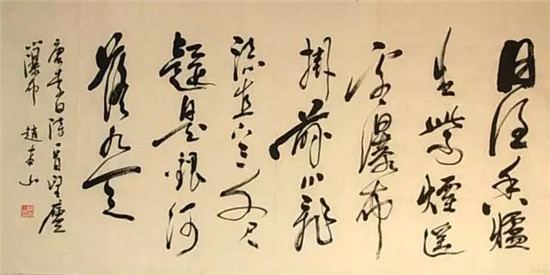 日照香爐
生紫煙遥
看瀑布
掛前川飛
流直下三千尺
疑是銀河
落九天
唐李白詩一首望廬
山瀑布 趙本山